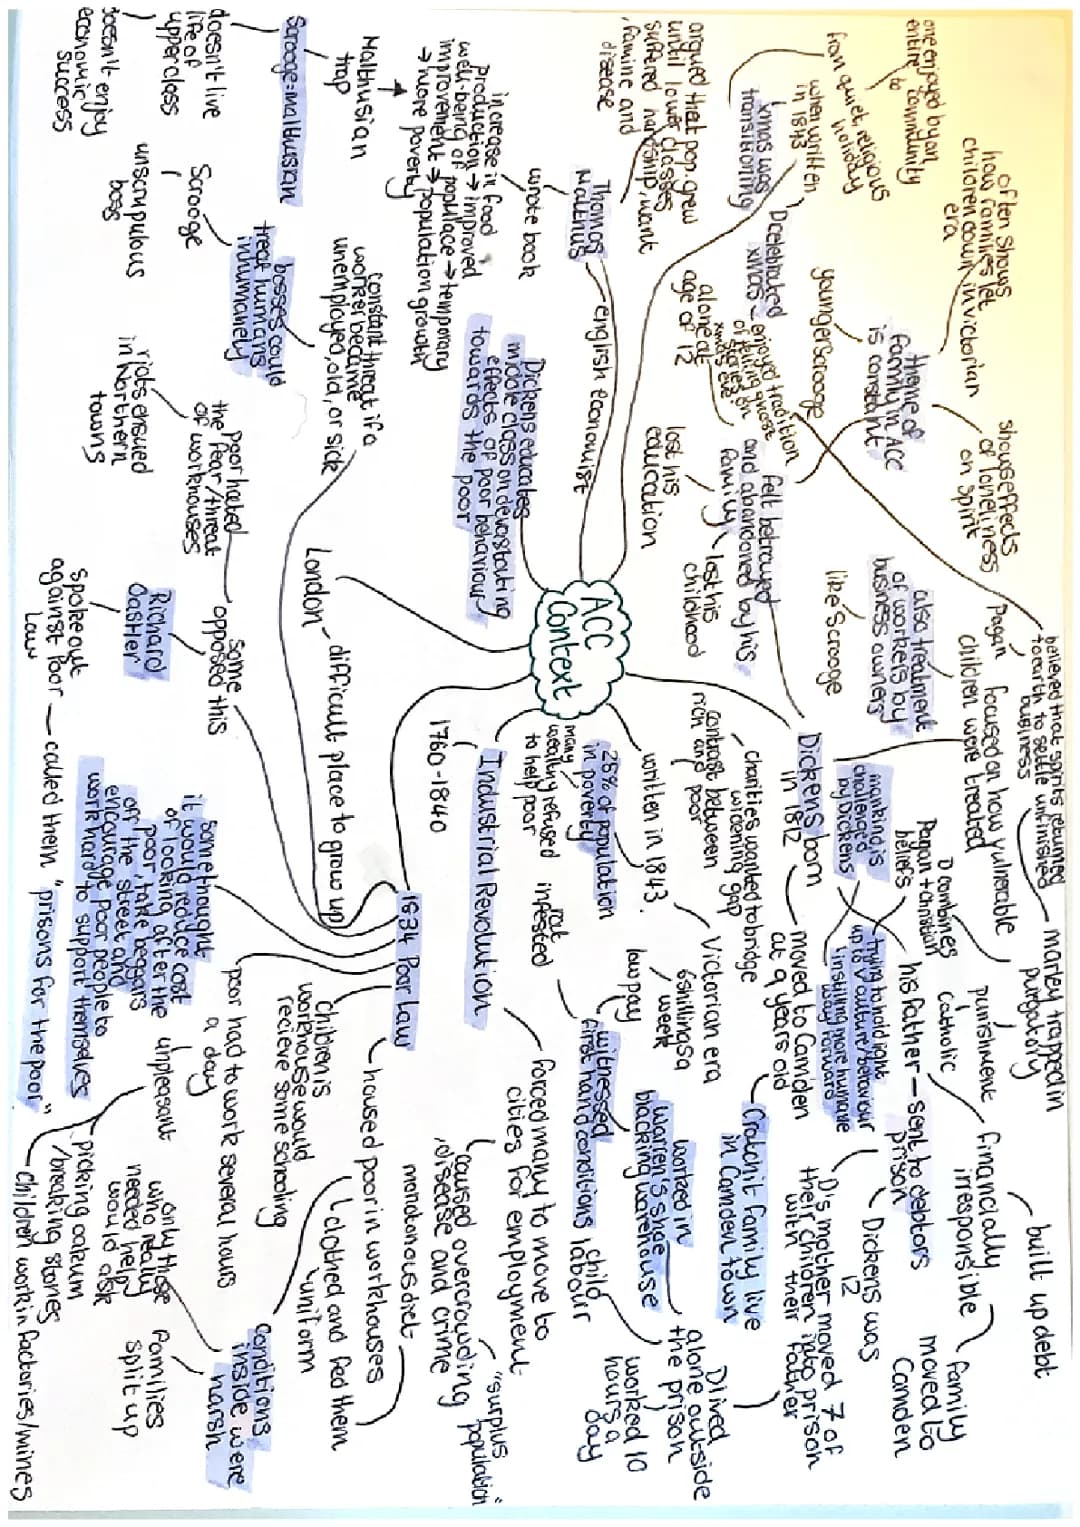 ACC
Context
Thomas
Malthus
english economist
wrote book
increase in food
production → improved
well-being of populace → temporary
improvement → population growth
→ more poverty
Malthusian
trap
Scrooge = malthusian
doesn't live
life of
upperclass
doesn't enjoy
economic
success
argued that pop. grew
until lower classes
suffered hardship, want
, famine and
disease
xmas was
transitioning
when written
in 1843
from quiet, religious
holiday
to
one enjoyed by an
entire community
D celebrated
xmas
enjoyed tradition
of telling ghost
stories on
xmas eve
believed that spirits returned
to earth to settle unfinished
business
Pagan
marley trapped in
purgatory
Catholic
punishment
D combines
Pagan + Christian
beliefs
Dickens born
in 1812
moved to Camden
at 9 years old
Cratchit family live
in Camden town
felt betrayed
and abandoned by his
family
lost his
education
lost his
childhood
alone at
age of 12
younger Scrooge
theme of
family in ACC
is constant
often shows
how families let
children down in victorian
era
shows effects
of loneliness
on spirit
focused on how vulnerable
children were treated
also treatment
of workers by
business owners
like Scrooge
mankind is
challenged
by Dickens
trying to hold light
up to V culture/behaviour
instilling more humane
way forward
his father - sent to debtors
prison
financially
irresponsible
built up debt
family
moved to
Camden
Dickens was
12
D's mother moved 7 of
their children into prison
with their father
D lived
alone outside
the prison
worked in
Warren's shoe
blacking warehouse
child
labour
worked 10
hours a
day
6 shillings a
week
low pay
witnessed
first hand conditions
rat
infested
written in 1843.
Victorian era
charities wanted to bridge
widening gap
contrast between
rich and poor
25% of population
in poverty
many
wealthy refused
to help poor
Industrial Revolution
1760-1840
forced many to move to
cities for employment
caused overcrowding
, disease and crime
"surplus
population"
1834 Poor Law
housed poor in workhouses
clothed and fed them
uniform
monotonous diet
conditions
inside were
harsh
families
split up
only those
who really
needed help
would ask
Children is
workhouse would
recieve some schooling
poor had to work several hours
a day
unpleasant
picking oakum
/breaking stones
children work in factories/mines
some thought
it would reduce cost
of looking after the
poor, take beggars
off the street and
encourage poor people to
work hard to support themselves
some
opposed this
Richard
Oastler
spoke out
against Poor
Law
called them "prisons for the poor"
Poor hated
the fear/threat
of workhouses
riots ensued
in Northern
towns
London - difficult place to grow up
constant threat if a
worker became
unemployed, old, or sick
bosses could
treat humans
inhumanely
Scrooge
unscrupulous
boss
Dickens educates
middle class on devastating
effects of poor behaviour
towards the
poor